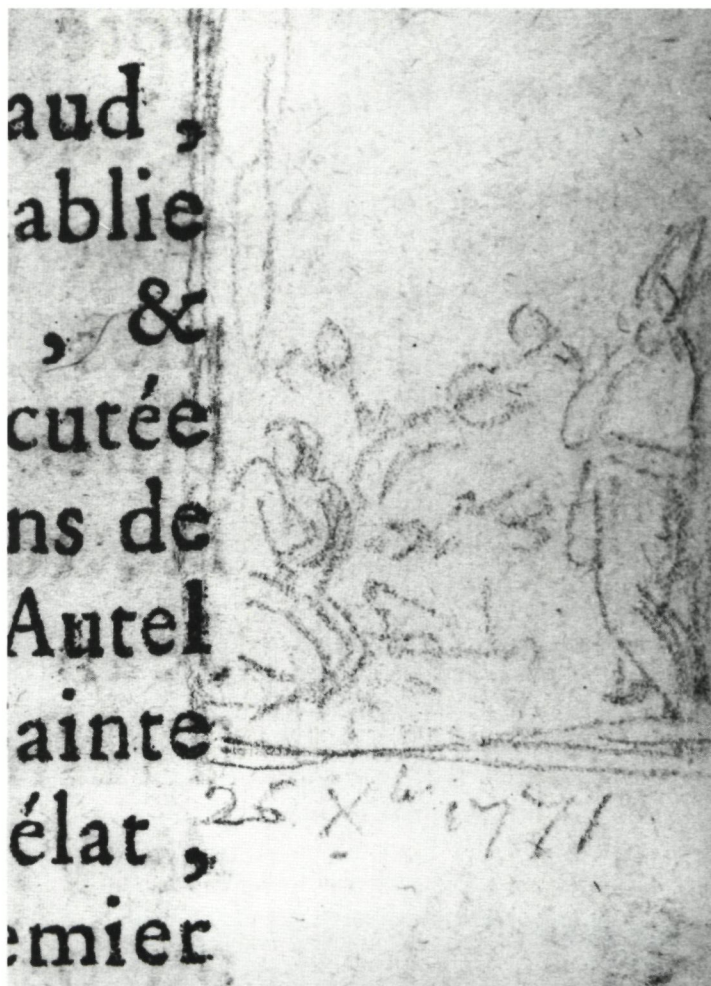 aud,
ablie
, &
cutée
ns de
Autel
ainte
élat,
emier
25 Xbr. 1771